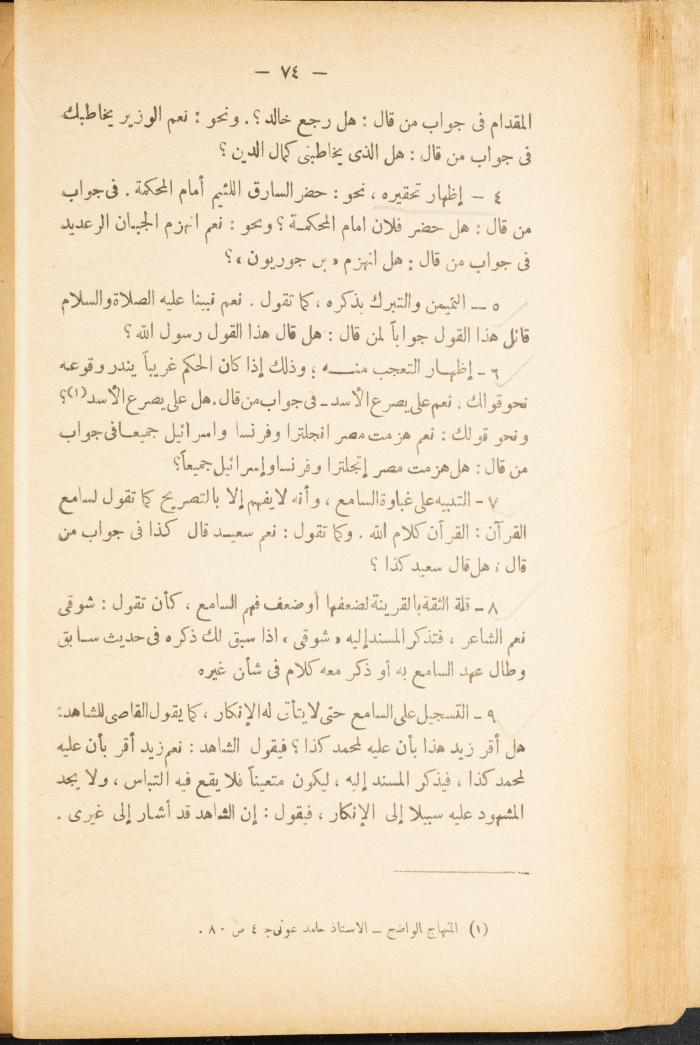 — ٧٤ —
المقدام فى جواب من قال : هل رجع خالد ؟ . ونحو : نعم الوزير يخاطبك
فى جواب من قال : هل الذى يخاطبنى كمال الدين ؟
٤ – إظهار تحقيره ، نحو : حضر السارق اللئيم أمام المحكمة . فى جواب
من قال : هل حضر فلان امام المحكمة ؟ ونحو : نعم انهزم الجبان الرعديد
فى جواب من قال : هل انهزم « بن جوريون » ؟
٥ — التيمن والتبرك بذكره ، كما تقول . نعم نبينا عليه الصلاة والسلام
قائل هذا القول جواباً لمن قال : هل قال هذا القول رسول الله ؟
٦ – إظهار التعجب منه ؛ وذلك إذا كان الحكم غريباً يندر وقوعه
نحو قولك . نعم على يصرع الأسد – فى جواب من قال . هل على يصرع الأسد (١) ؟
ونحو قولك : نعم هزمت مصر انجلترا وفرنسا واسرائيل جميعا فى جواب
من قال : هل هزمت مصر إنجلترا وفرنسا وإسرائيل جميعاً ؟
٧ – التنبيه على غباوة السامع ، وأنه لا يفهم إلا بالتصريح كما تقول لسامع
القرآن : القرآن كلام الله . وكما تقول : نعم سعيد قال كذا فى جواب من
قال : هل قال سعيد كذا ؟
٨ – قلة الثقة بالقرينة لضعفها أو ضعف فهم السامع ، كأن تقول : شوقى
نعم الشاعر ، فتذكر المسند إليه « شوقى » اذا سبق لك ذكره فى حديث سابق
وطال عهد السامع به أو ذكر معه كلام فى شأن غيره
٩ – التسجيل على السامع حتى لا يتأتى له الإنكار ، كما يقول القاضى للشاهد :
هل أقر زيد هذا بأن عليه لمحمد كذا ؟ فيقول الشاهد : نعم زيد أقر بأن عليه
لمحمد كذا ، فيذكر المسند إليه ، ليكون متعيناً فلا يقع فيه التباس ، ولا يجد
المشهود عليه سبيلا إلى الإنكار ، فيقول : إن الشاهد قد أشار إلى غيرى .
(١) المنهاج الواضح – الاستاذ حامد عونى ج ٤ ص ٨٠ .